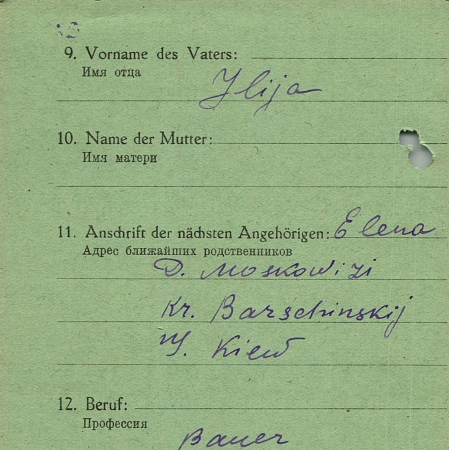 9. Vorname des Vaters:
Имя отца
Ilija
10. Name der Mutter:
Имя матери
11. Anschrift der nächsten Angehörigen: Elena
Адрес ближайших родственников
D. Moskowizi
Kr. Barschinskij
Kiew
12. Beruf:
Профессия
Bauer